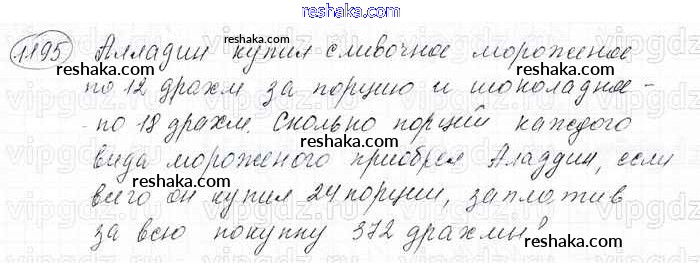 reshaka.com
1195 Алладин купил сливочное мороженое
reshaka.com
по 12 драхм за порцию и шоколадное -
reshaka.com
по 18 драхм. Сколько порций каждого
reshaka.com
вида мороженого приобрел Аладдин, если
reshaka.com
всего он купил 24 порции, заплатив
reshaka.com
за всю покупку 372 драхмы?
reshaka.com